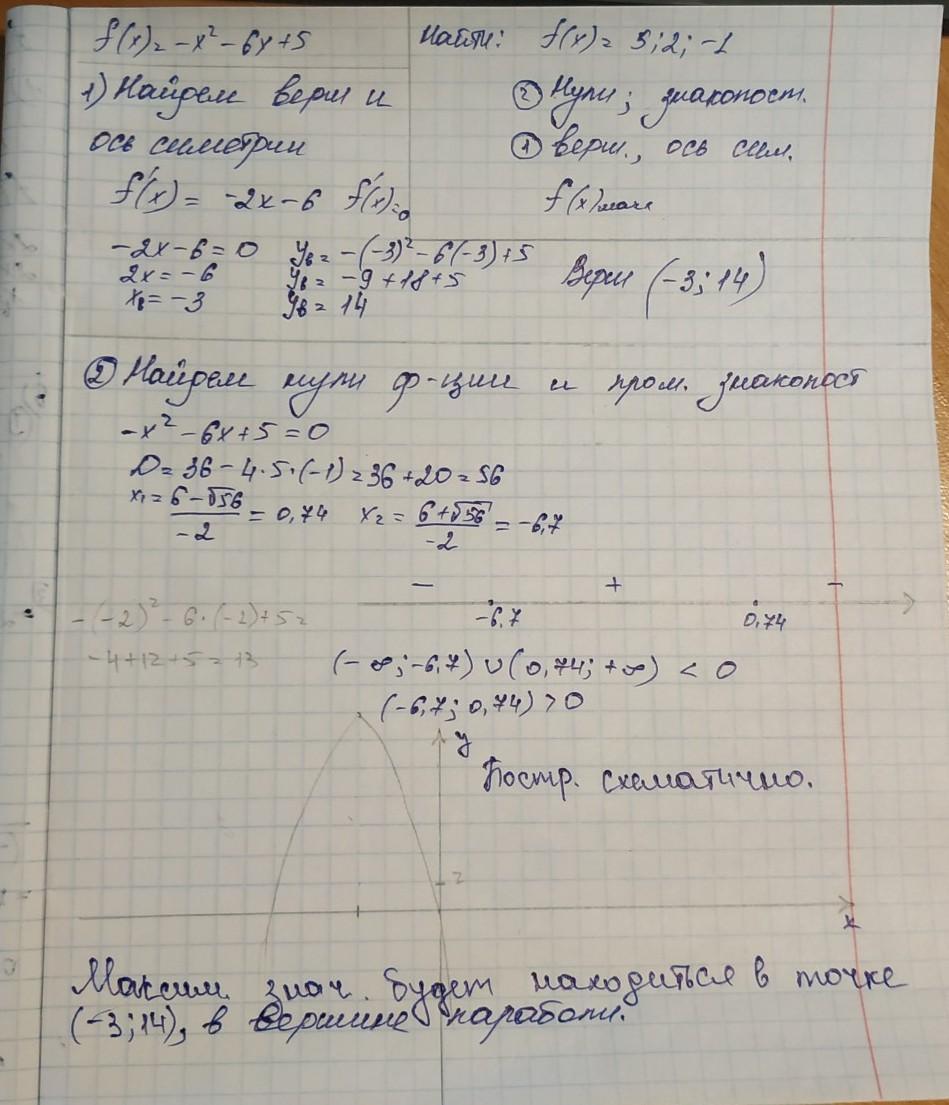 f(x) = -x² - 6x + 5
Найти: f(x) = 5; 2; -1
1) Найдем верш и
ось симетрии
② Нули; знакопост.
① верш., ось сим.
f(x) макс
f'(x) = -2x - 6 f'(x) = 0
-2x - 6 = 0
2x = -6
xв = -3
yв = -(-3)² - 6(-3) + 5
yв = -9 + 18 + 5
yв = 14
Верш (-3; 14)
② Найдем нули ф-ции и пром. знакопост
-x² - 6x + 5 = 0
D = 36 - 4·5·(-1) = 36 + 20 = 56
x₁ = (6 - √56)/(-2) = 0,74 x₂ = (6 + √56)/(-2) = -6,7
- + -
-6,7 0,74
-(-2)² - 6·(-2) + 5 =
-4 + 12 + 5 = 13
(-∞; -6,7) ∪ (0,74; +∞) < 0
(-6,7; 0,74) > 0
y
Постр. схематично.
2
x
Максим. знач. будет находиться в точке
(-3; 14), в вершине параболи.